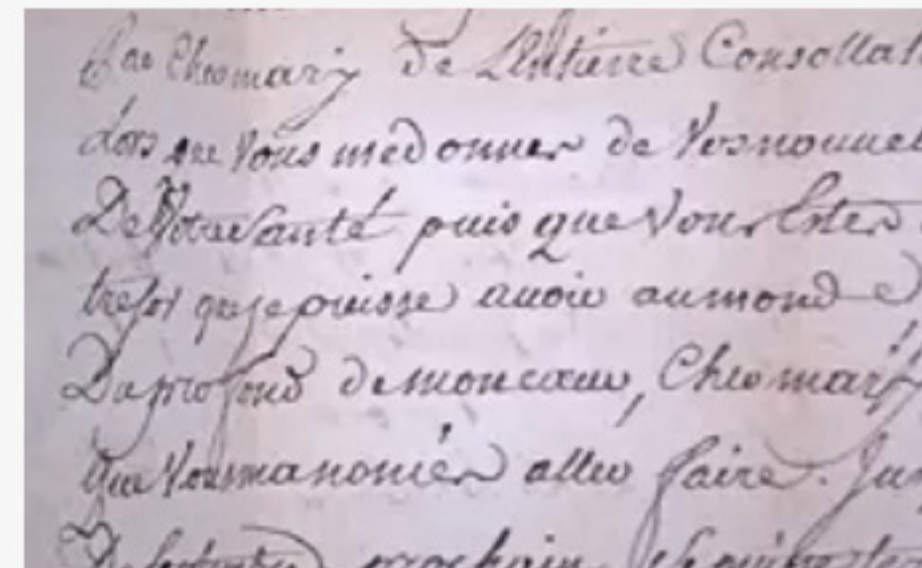 Cher mary de L'Entiere Consollat
Lors que Vous me donner de Vos nouvel
De Votre Santé puis que Vous Estes
tresor que je puisse avoir au monde
Du profond de mon coeur, Cher mary
que Vous aller faire. Ju
De prochain